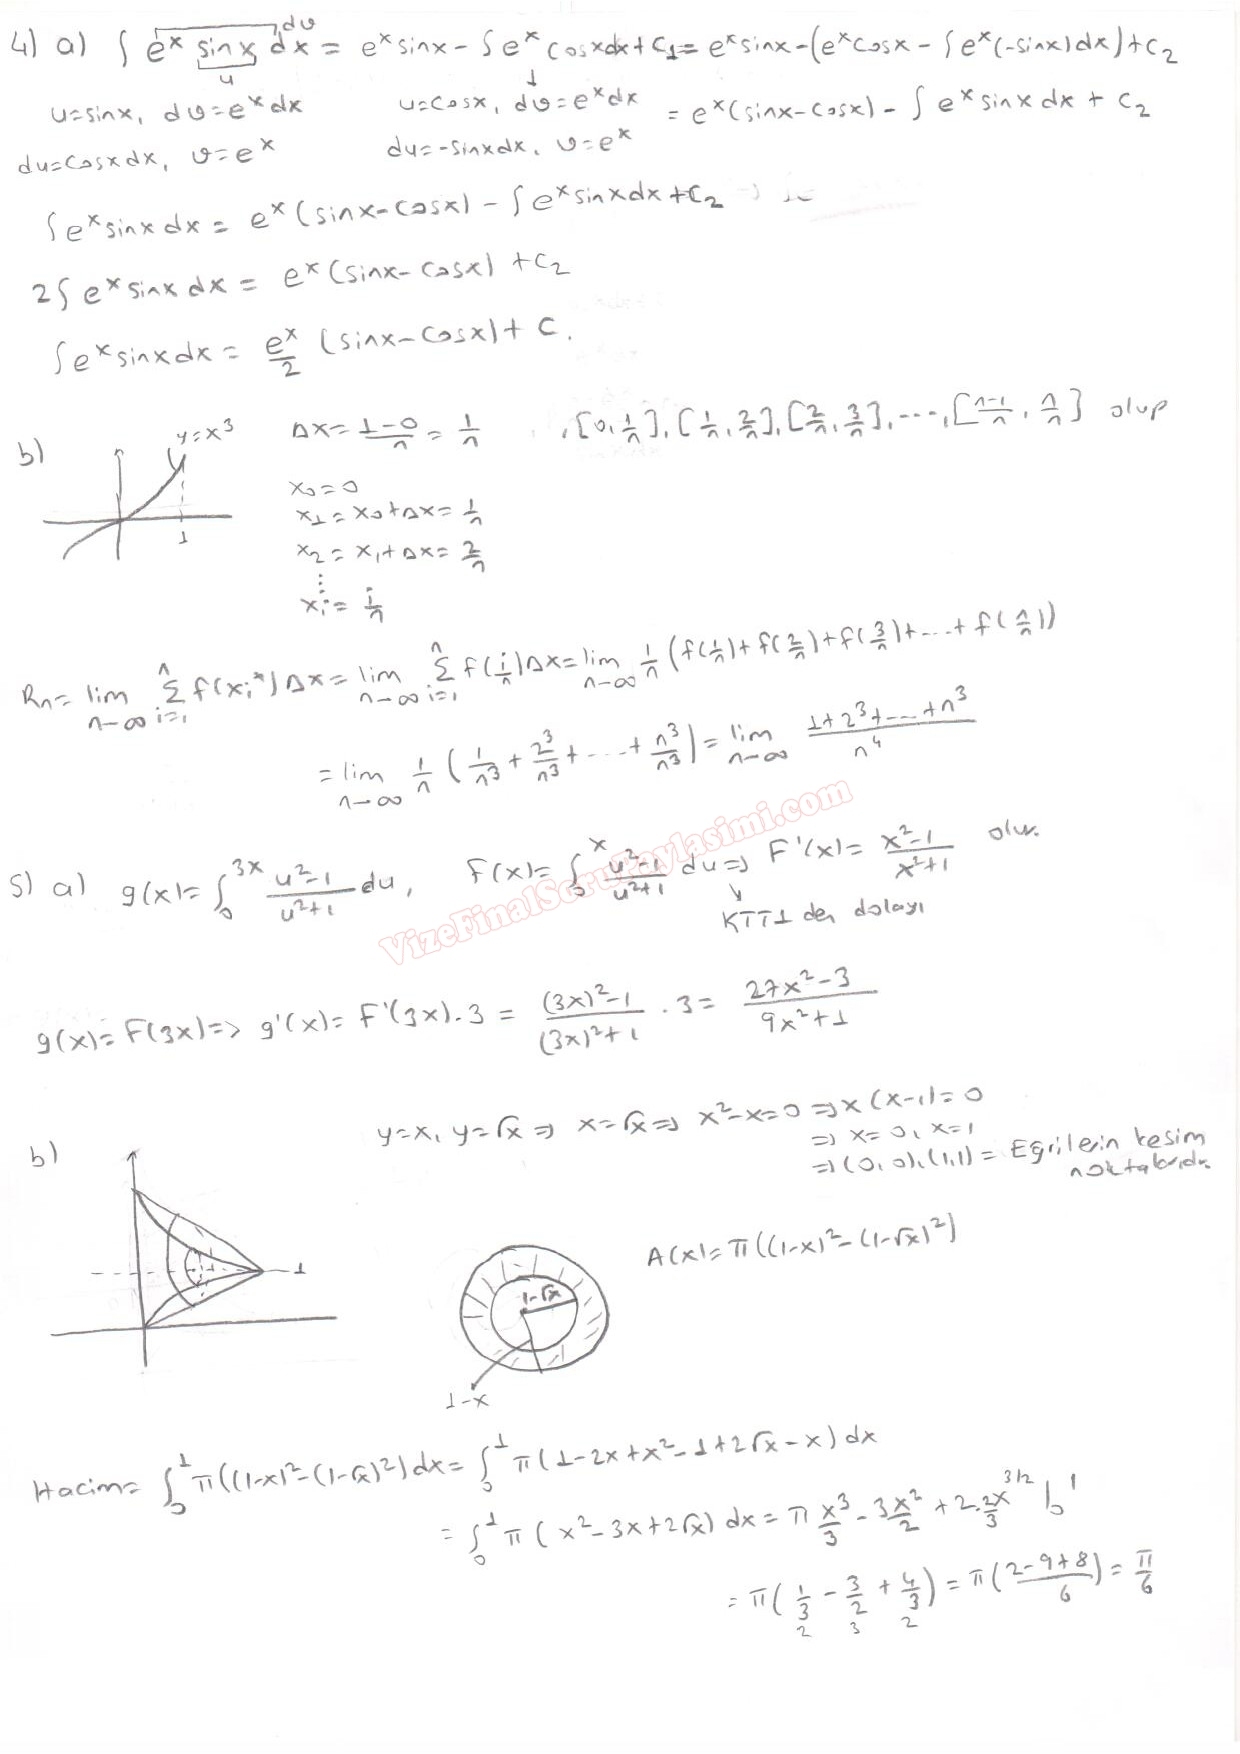 4) a) ∫ e^x sinx dx = e^x sinx - ∫ e^x cosx dx + c₁ = e^x sinx - (e^x cosx - ∫ e^x (-sinx) dx) + c₂
dv
u
u=sinx, dv=e^x dx
u=cosx, dv=e^x dx
= e^x (sinx - cosx) - ∫ e^x sinx dx + c₂
du=cosx dx, v=e^x
du=-sinx dx, v=e^x
∫ e^x sinx dx = e^x (sinx - cosx) - ∫ e^x sinx dx + c₂
2∫ e^x sinx dx = e^x (sinx - cosx) + c₂
∫ e^x sinx dx = e^x/2 (sinx - cosx) + c.
b) y=x³
1
Δx = (1-0)/n = 1/n , [0, 1/n], [1/n, 2/n], [2/n, 3/n], ..., [(n-1)/n, n/n] olup
x₀ = 0
x₁ = x₀ + Δx = 1/n
x₂ = x₁ + Δx = 2/n
⋮
xᵢ = i/n
Rn = lim n→∞ Σ i=1 n f(xᵢ*) Δx = lim n→∞ Σ i=1 n f(i/n) Δx = lim n→∞ 1/n (f(1/n) + f(2/n) + f(3/n) + ... + f(n/n))
= lim n→∞ 1/n (1/n³ + 2³/n³ + ... + n³/n³) = lim n→∞ (1+2³+...+n³)/n⁴
VizeFinalSoruPaylasimi.com
5) a) g(x) = ∫₀^3x (u²-1)/(u²+1) du, F(x) = ∫₀^x (u²-1)/(u²+1) du ⇒ F'(x) = (x²-1)/(x²+1) olur.
KTT1 den dolayı
g(x) = F(3x) ⇒ g'(x) = F'(3x).3 = ((3x)²-1)/((3x)²+1) . 3 = (27x²-3)/(9x²+1)
b) y=x, y=√x ⇒ x=√x ⇒ x²-x=0 ⇒ x(x-1)=0
⇒ x=0, x=1
⇒ (0,0), (1,1) = Eğrilerin kesim
noktalarıdır.
1
A(x) = π((1-x)² - (1-√x)²)
1-√x
1-x
Hacim = ∫₀¹ π((1-x)² - (1-√x)²) dx = ∫₀¹ π(1-2x+x²-1+2√x-x) dx
= ∫₀¹ π(x²-3x+2√x) dx = π x³/3 - 3x²/2 + 2.2x^3/2/3 |₀¹
= π(1/3 - 3/2 + 4/3) = π((2-9+8)/6) = π/6
2 3 2